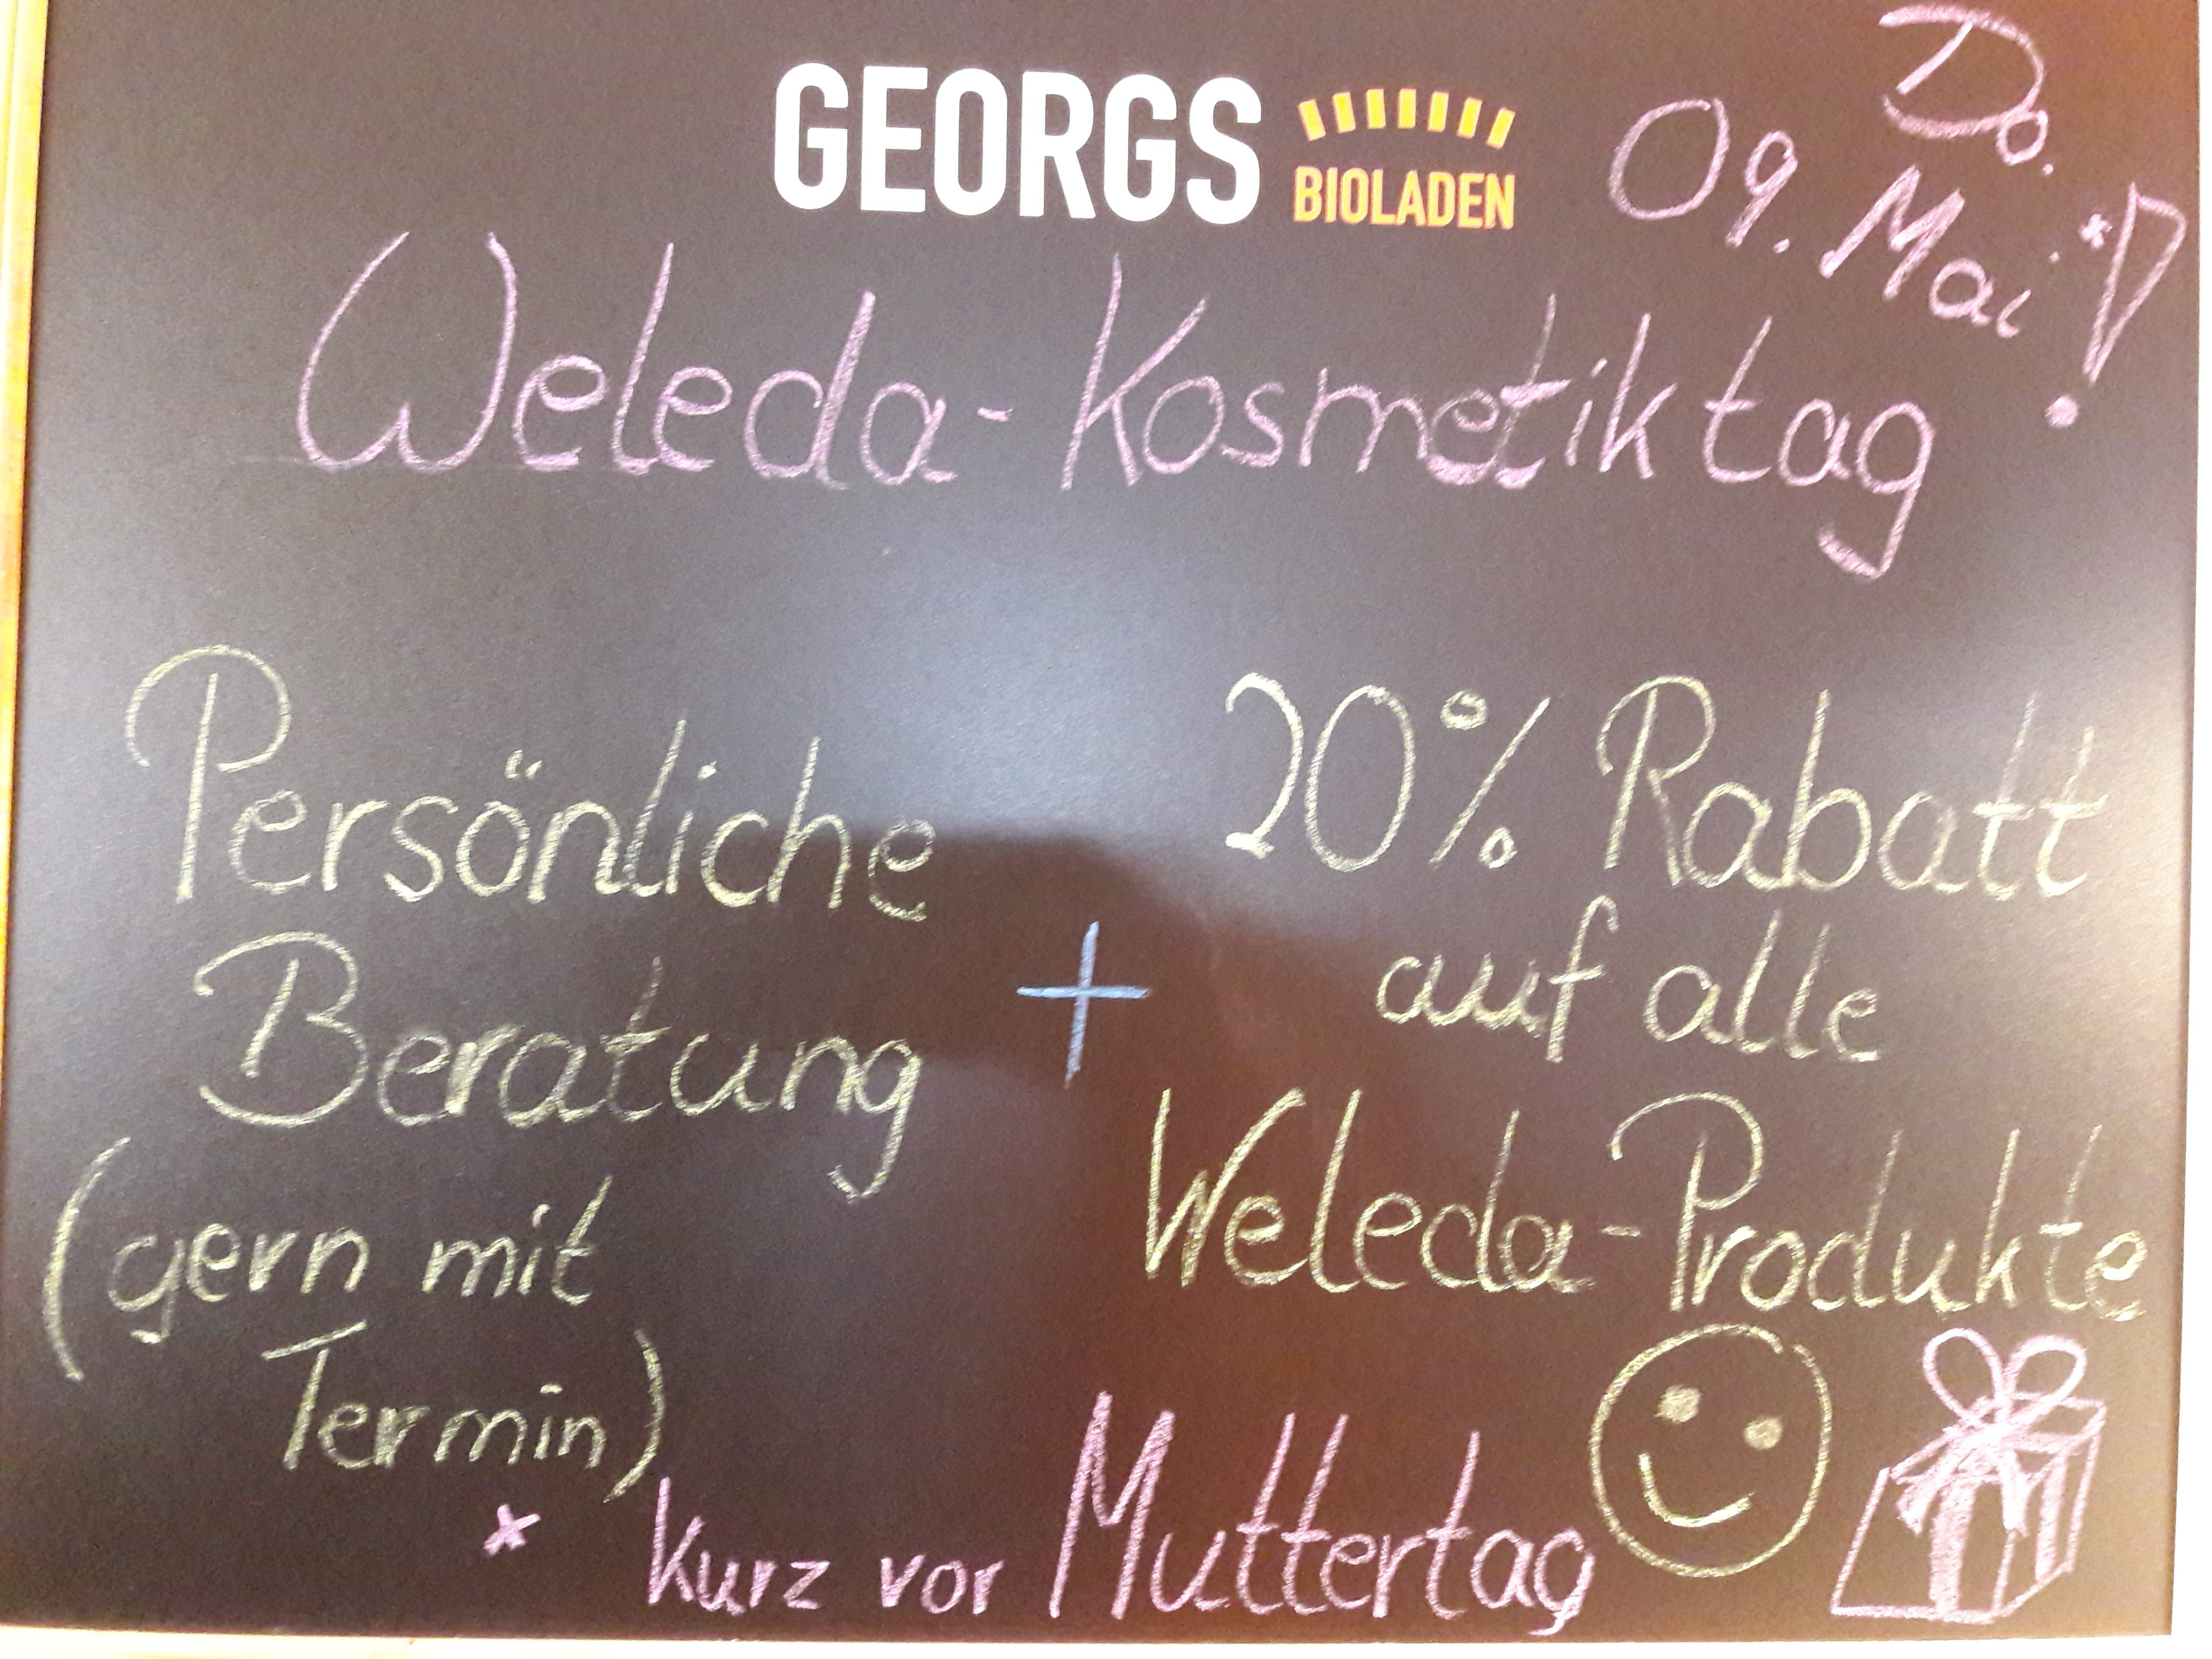 GEORGS BIOLADEN
Do.
09. Mai*!
Weleda-Kosmetiktag
Persönliche
Beratung
(gern mit
Termin)
+
20% Rabatt
auf alle
Weleda-Produkte
* Kurz vor Muttertag